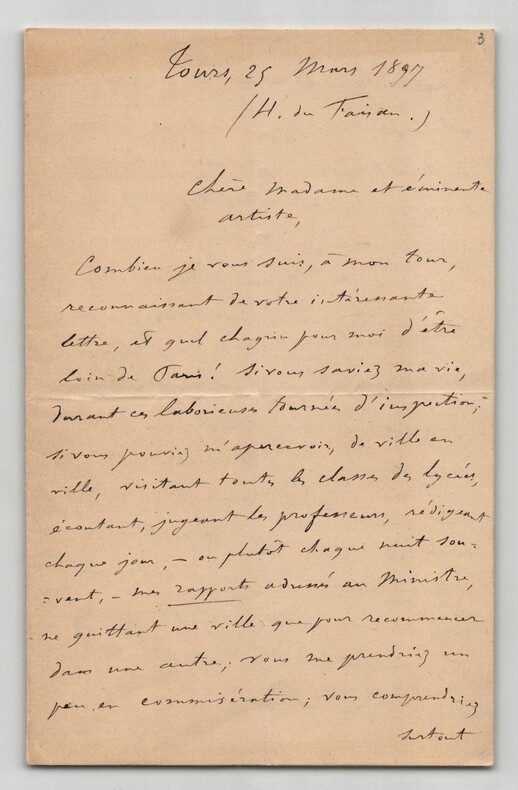 3
Tours, 25 Mars 1897
(H. du Faisan.)
Chère madame et éminente
artiste,
Combien je vous suis, à mon tour,
reconnaissant de votre intéressante
lettre, et quel chagrin pour moi d'être
loin de Paris! Si vous saviez ma vie,
durant ces laborieuses tournées d'inspection;
si vous pouviez m'apercevoir, de ville en
ville, visitant toutes les classes des lycées,
écoutant, jugeant les professeurs, rédigeant
chaque jour, – ou plutôt chaque nuit sou=
=vent, – mes rapports adressés au Ministre,
ne quittant une ville que pour recommencer
dans une autre; vous me prendriez un
peu en commisération; vous comprendriez
surtout